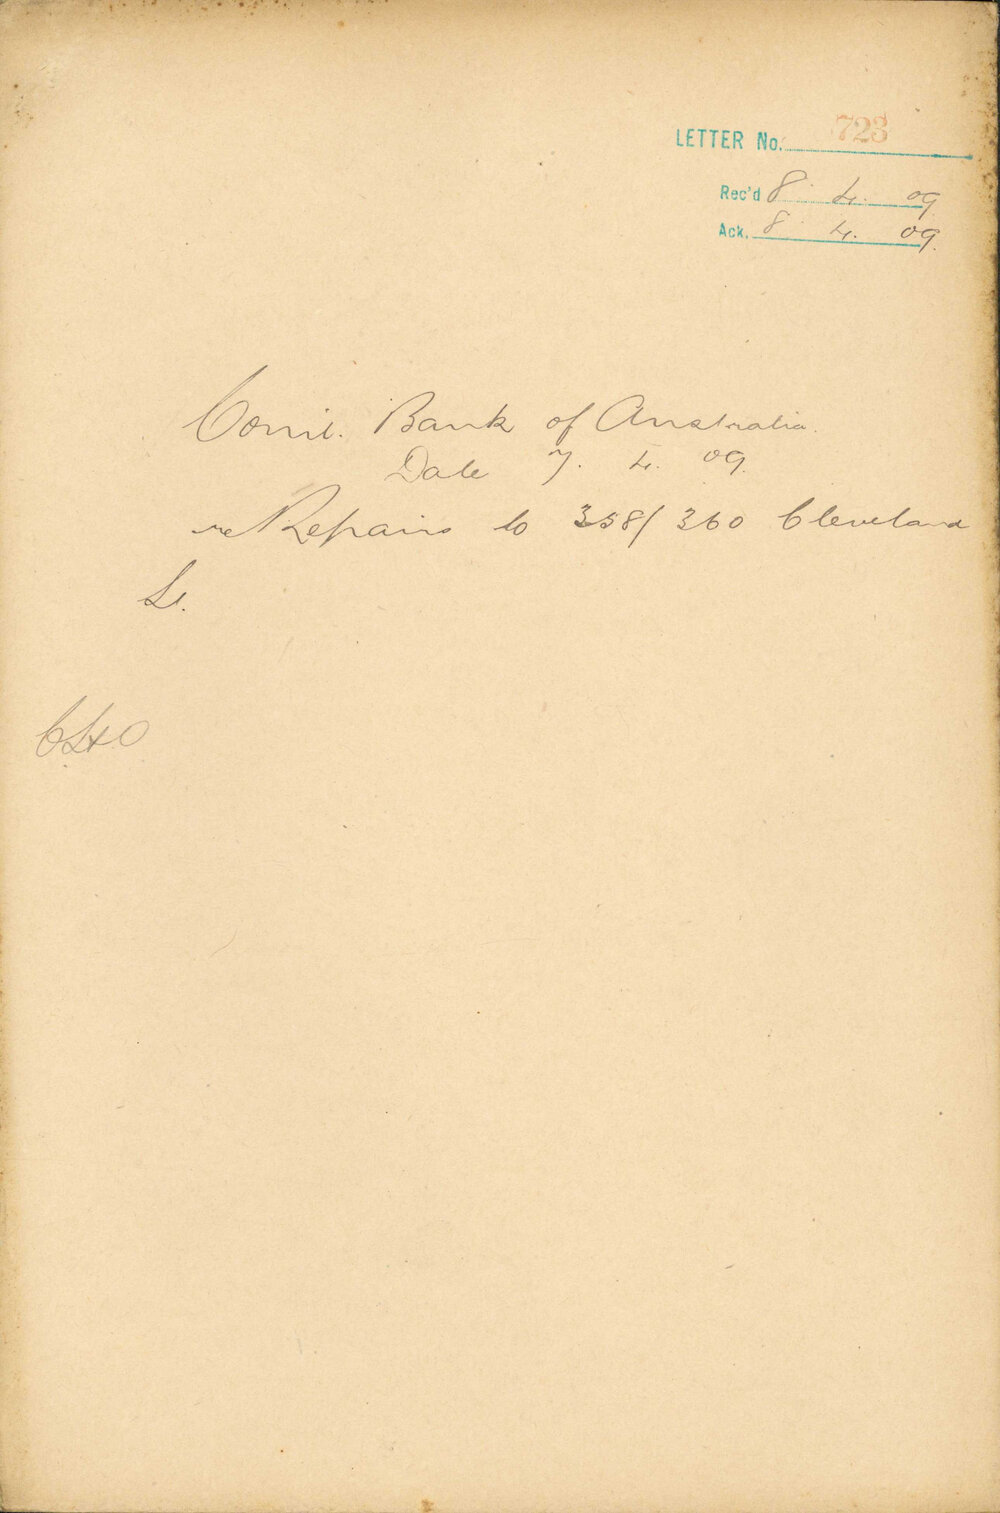 LETTER No. 723
Rec'd 8. 4. 09
Ack. 8. 4. 09.
Coml. Bank of Australia.
Date 7. 4. 09.
re Repairs to 358/360 Cleveland
St.